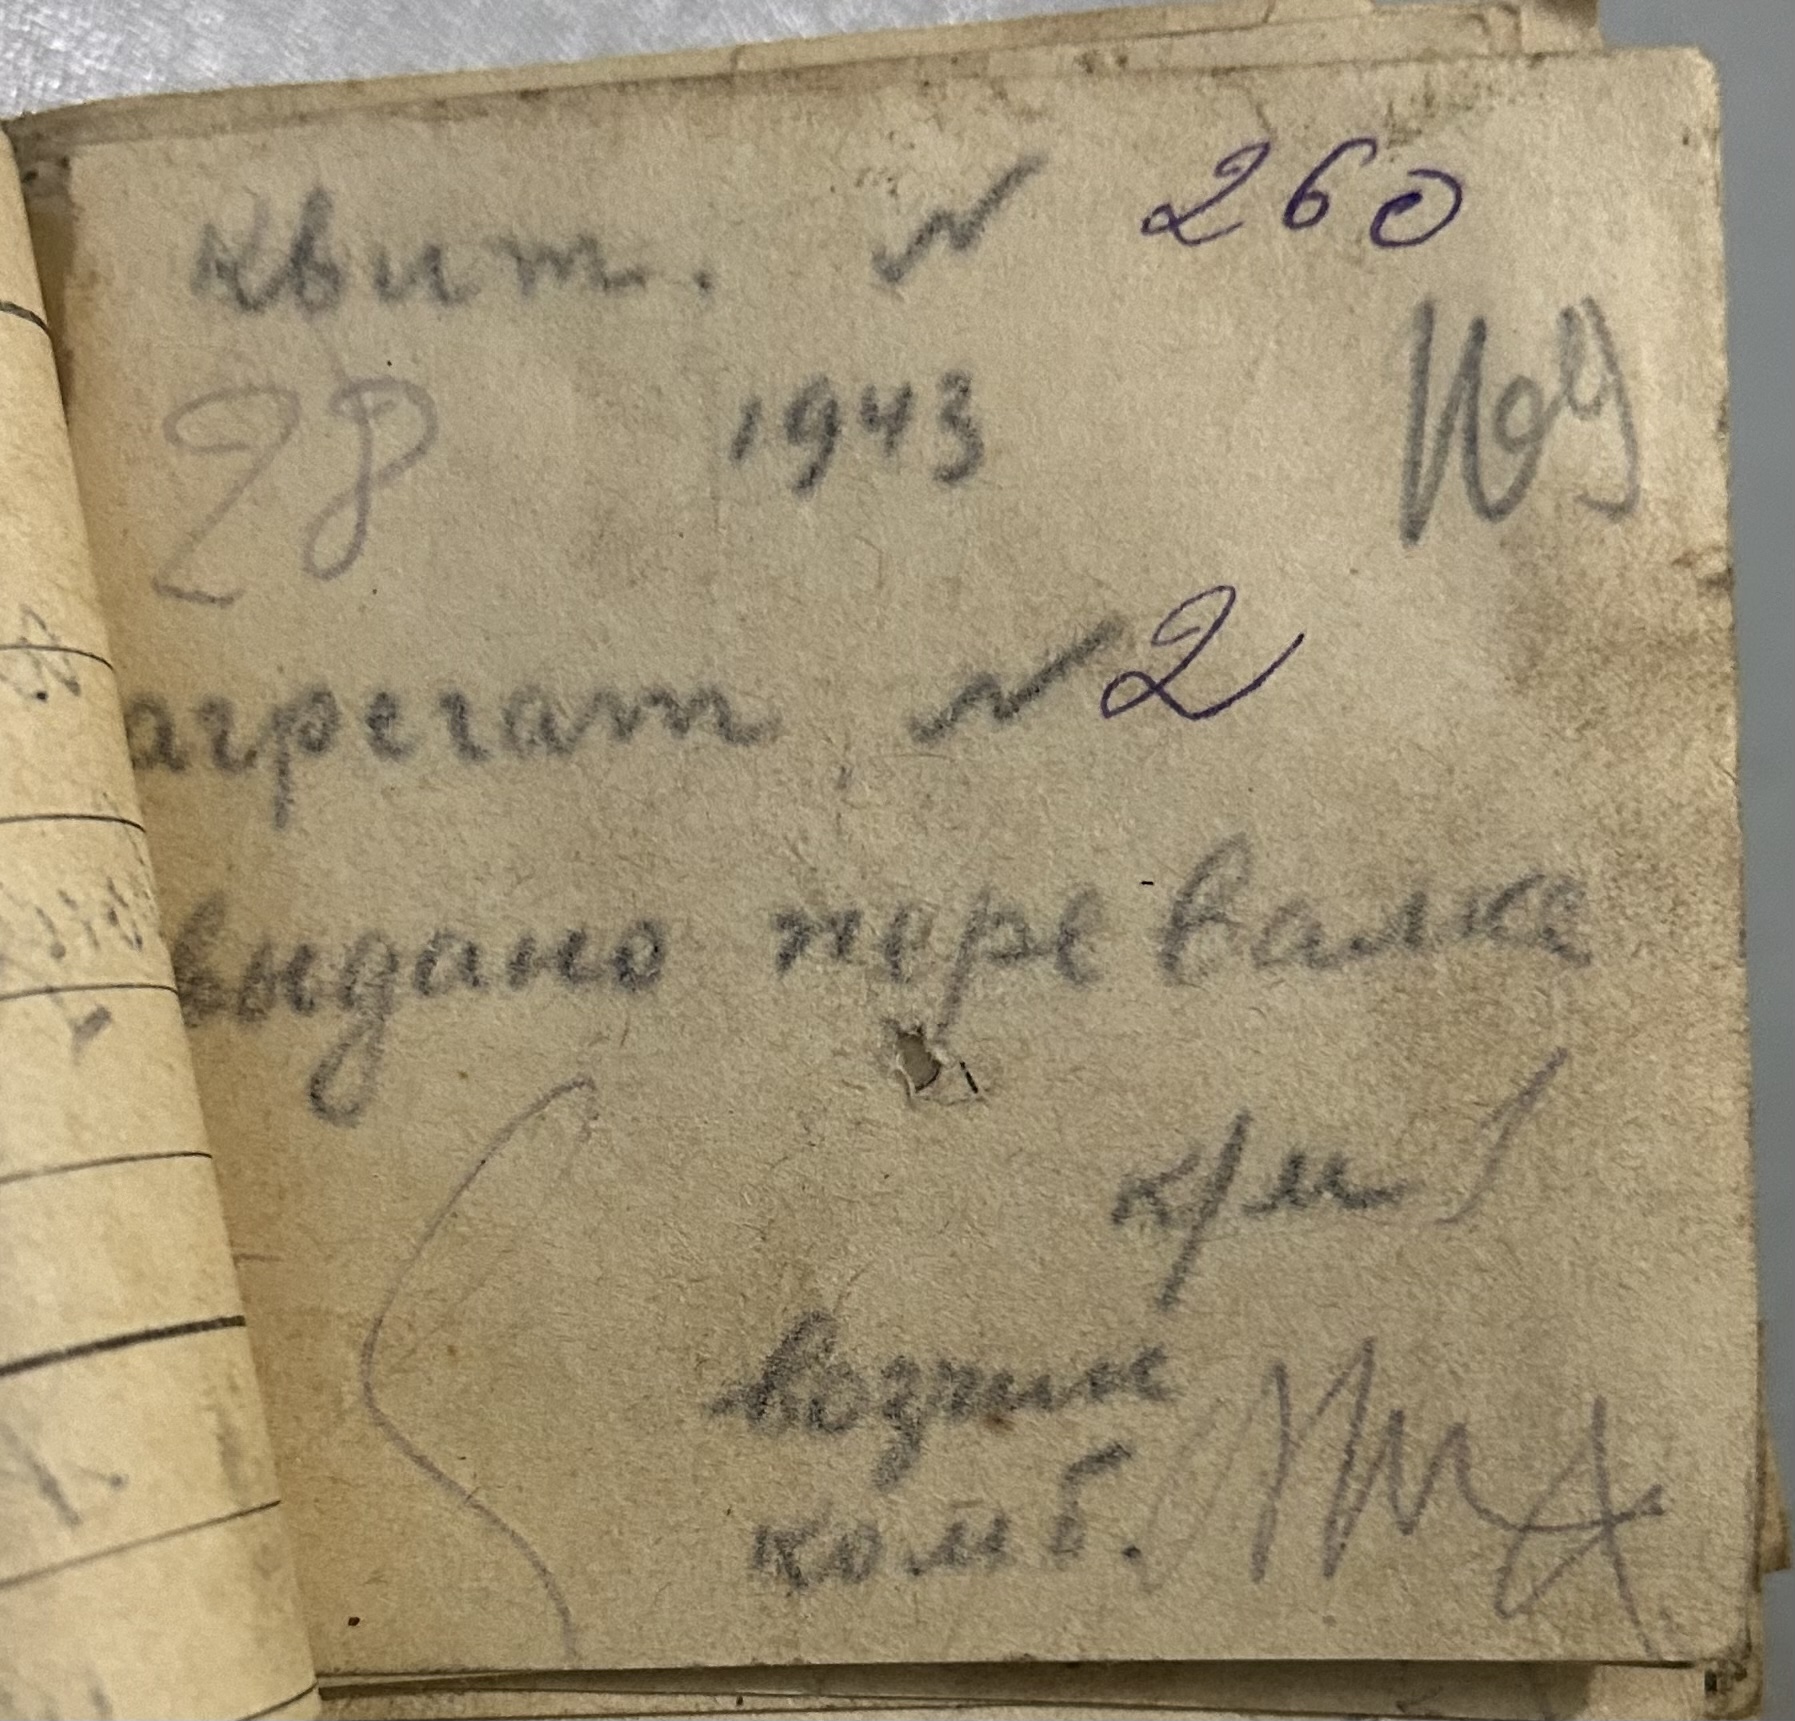 квит. № 260
28 1943
агрегат №2
выдано перевалка
к/м
возчик
комб.